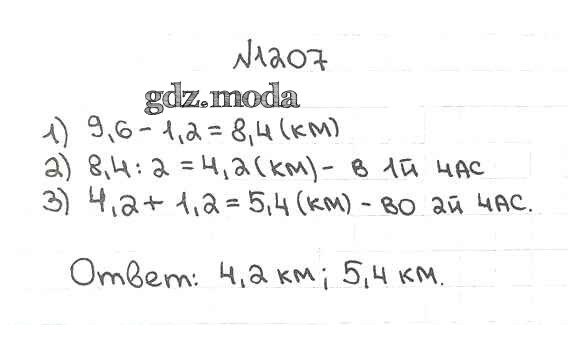 №1207
gdz.moda
1) 9,6 - 1,2 = 8,4 (км)
2) 8,4 : 2 = 4,2 (км) - в 1й час
3) 4,2 + 1,2 = 5,4 (км) - во 2й час.
Ответ: 4,2 км; 5,4 км.